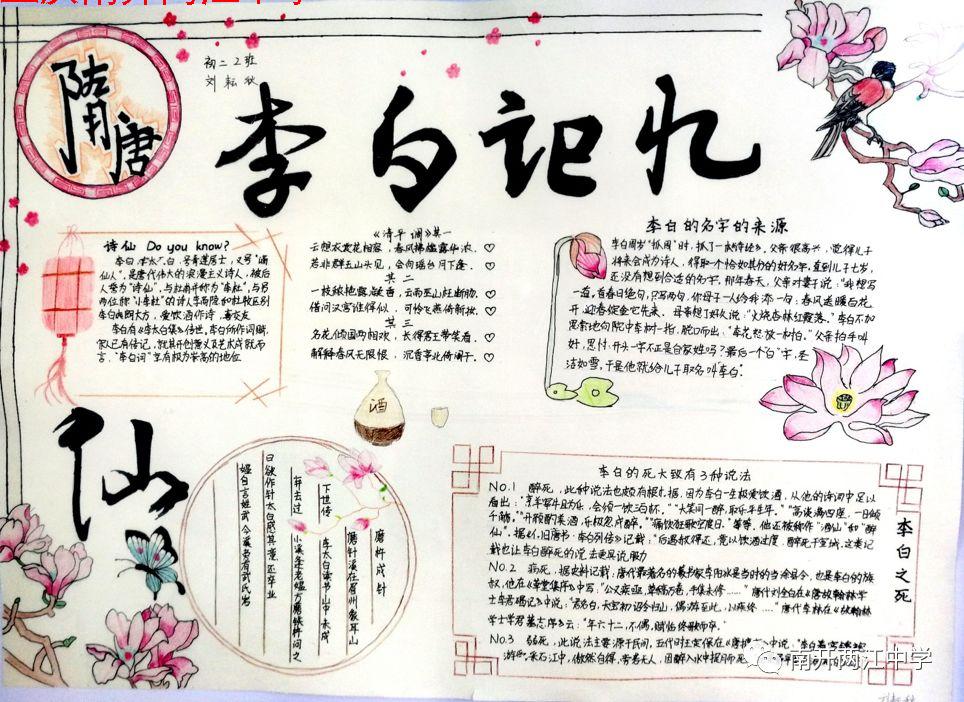 隋唐
初二2班
刘耘秋
李白记忆
诗仙 Do you know?
李白,字太白,号青莲居士,又号“谪
仙人”,是唐代伟大的浪漫主义诗人,被后
人誉为“诗仙”,与杜甫并称为“李杜”,与另
两位称“小李杜”的诗人李商隐和杜牧区别
李白爽朗大方,爱饮酒作诗,喜交友
李白有《李太白集》传世。李白所作词赋,
宋人已有传记,就其开创意义及艺术成就而
言,“李白词”享有极为崇高的地位
《清平调》其一
云想衣裳花想容,春风拂槛露华浓.
若非群玉山头见,会向瑶台月下逢.
其二
一枝秾艳露凝香,云雨巫山枉断肠.
借问汉宫谁得似,可怜飞燕倚新妆.
其三
名花倾国两相欢,长得君王带笑看.
解释春风无限恨,沉香亭北倚阑干.
李白的名字的来源
李白周岁“抓周”时,抓了一本《诗经》。父亲很高兴,觉得儿子
将来会成为诗人,得取个恰如其份的好名字,直到儿子七岁,
还没有想到合适的名字。那年春天,父亲对妻子说:“我想写
一首首春日绝句,只写两句,你母子一人给我添一句:春风送暖百花
开,迎春绽金它先来。母亲想了好久说:“火烧杏林红霞落,”李白不加
思索地向院中李树一指,脱口而出:“李花怒放一树白。”父亲拍手叫
好,思忖:开头一字不正是自家姓吗?最后一个“白”字,圣
洁如雪,于是他就给儿子取名叫李白。
酒
仙
磨杵成针
磨针溪在眉州象耳山
下世传
李太白读书山中未成
弃去过
小溪逢老媪方磨铁杵问之
曰欲作针太白感其意还卒业
媪自言姓武今溪旁有武氏岩
李白的死大致有3种说法
李白之死
NO.1 醉死,此种说法也颇有根据,因为李白一生极爱饮酒,从他的诗词中足以
看出:“烹羊宰牛且为乐,会须一饮三百杯。”“大笑同一醉,取乐平生年。”“高谈满四座,一日倾
千觞。”“开颜酌美酒,乐极忽成醉。”“痛饮狂歌空度日。”等等,他还被称作“酒仙”和“醉
仙”。据《旧唐书·李白列传》记载:“后遇赦得还,竟以饮酒过度,醉死于宣城。这类记
载也让李白醉死的说法更具说服力
NO.2 病死,据史料记载:唐代最著名的篆书家李阳冰是当时的当涂县令,也是李白的族
叔,他在《草堂集序》中写:“公又疾亟,草稿万卷,手集未修……”唐代刘全白在《唐故翰林学
士李君碣记》中说:“君名白,天宝初诏令归山,偶游至此,以疾终……”唐代李华在《故翰林
学士李君墓志序》云:“年六十二,不偶,赋临终歌而卒。”
NO.3 溺死,此说法主要源于民间,五代时王定保在《唐摭言》中说,“李白着宫锦袍,
游采石江中,傲然自得,旁若无人,因醉入水中捉月而死
南开两江中学